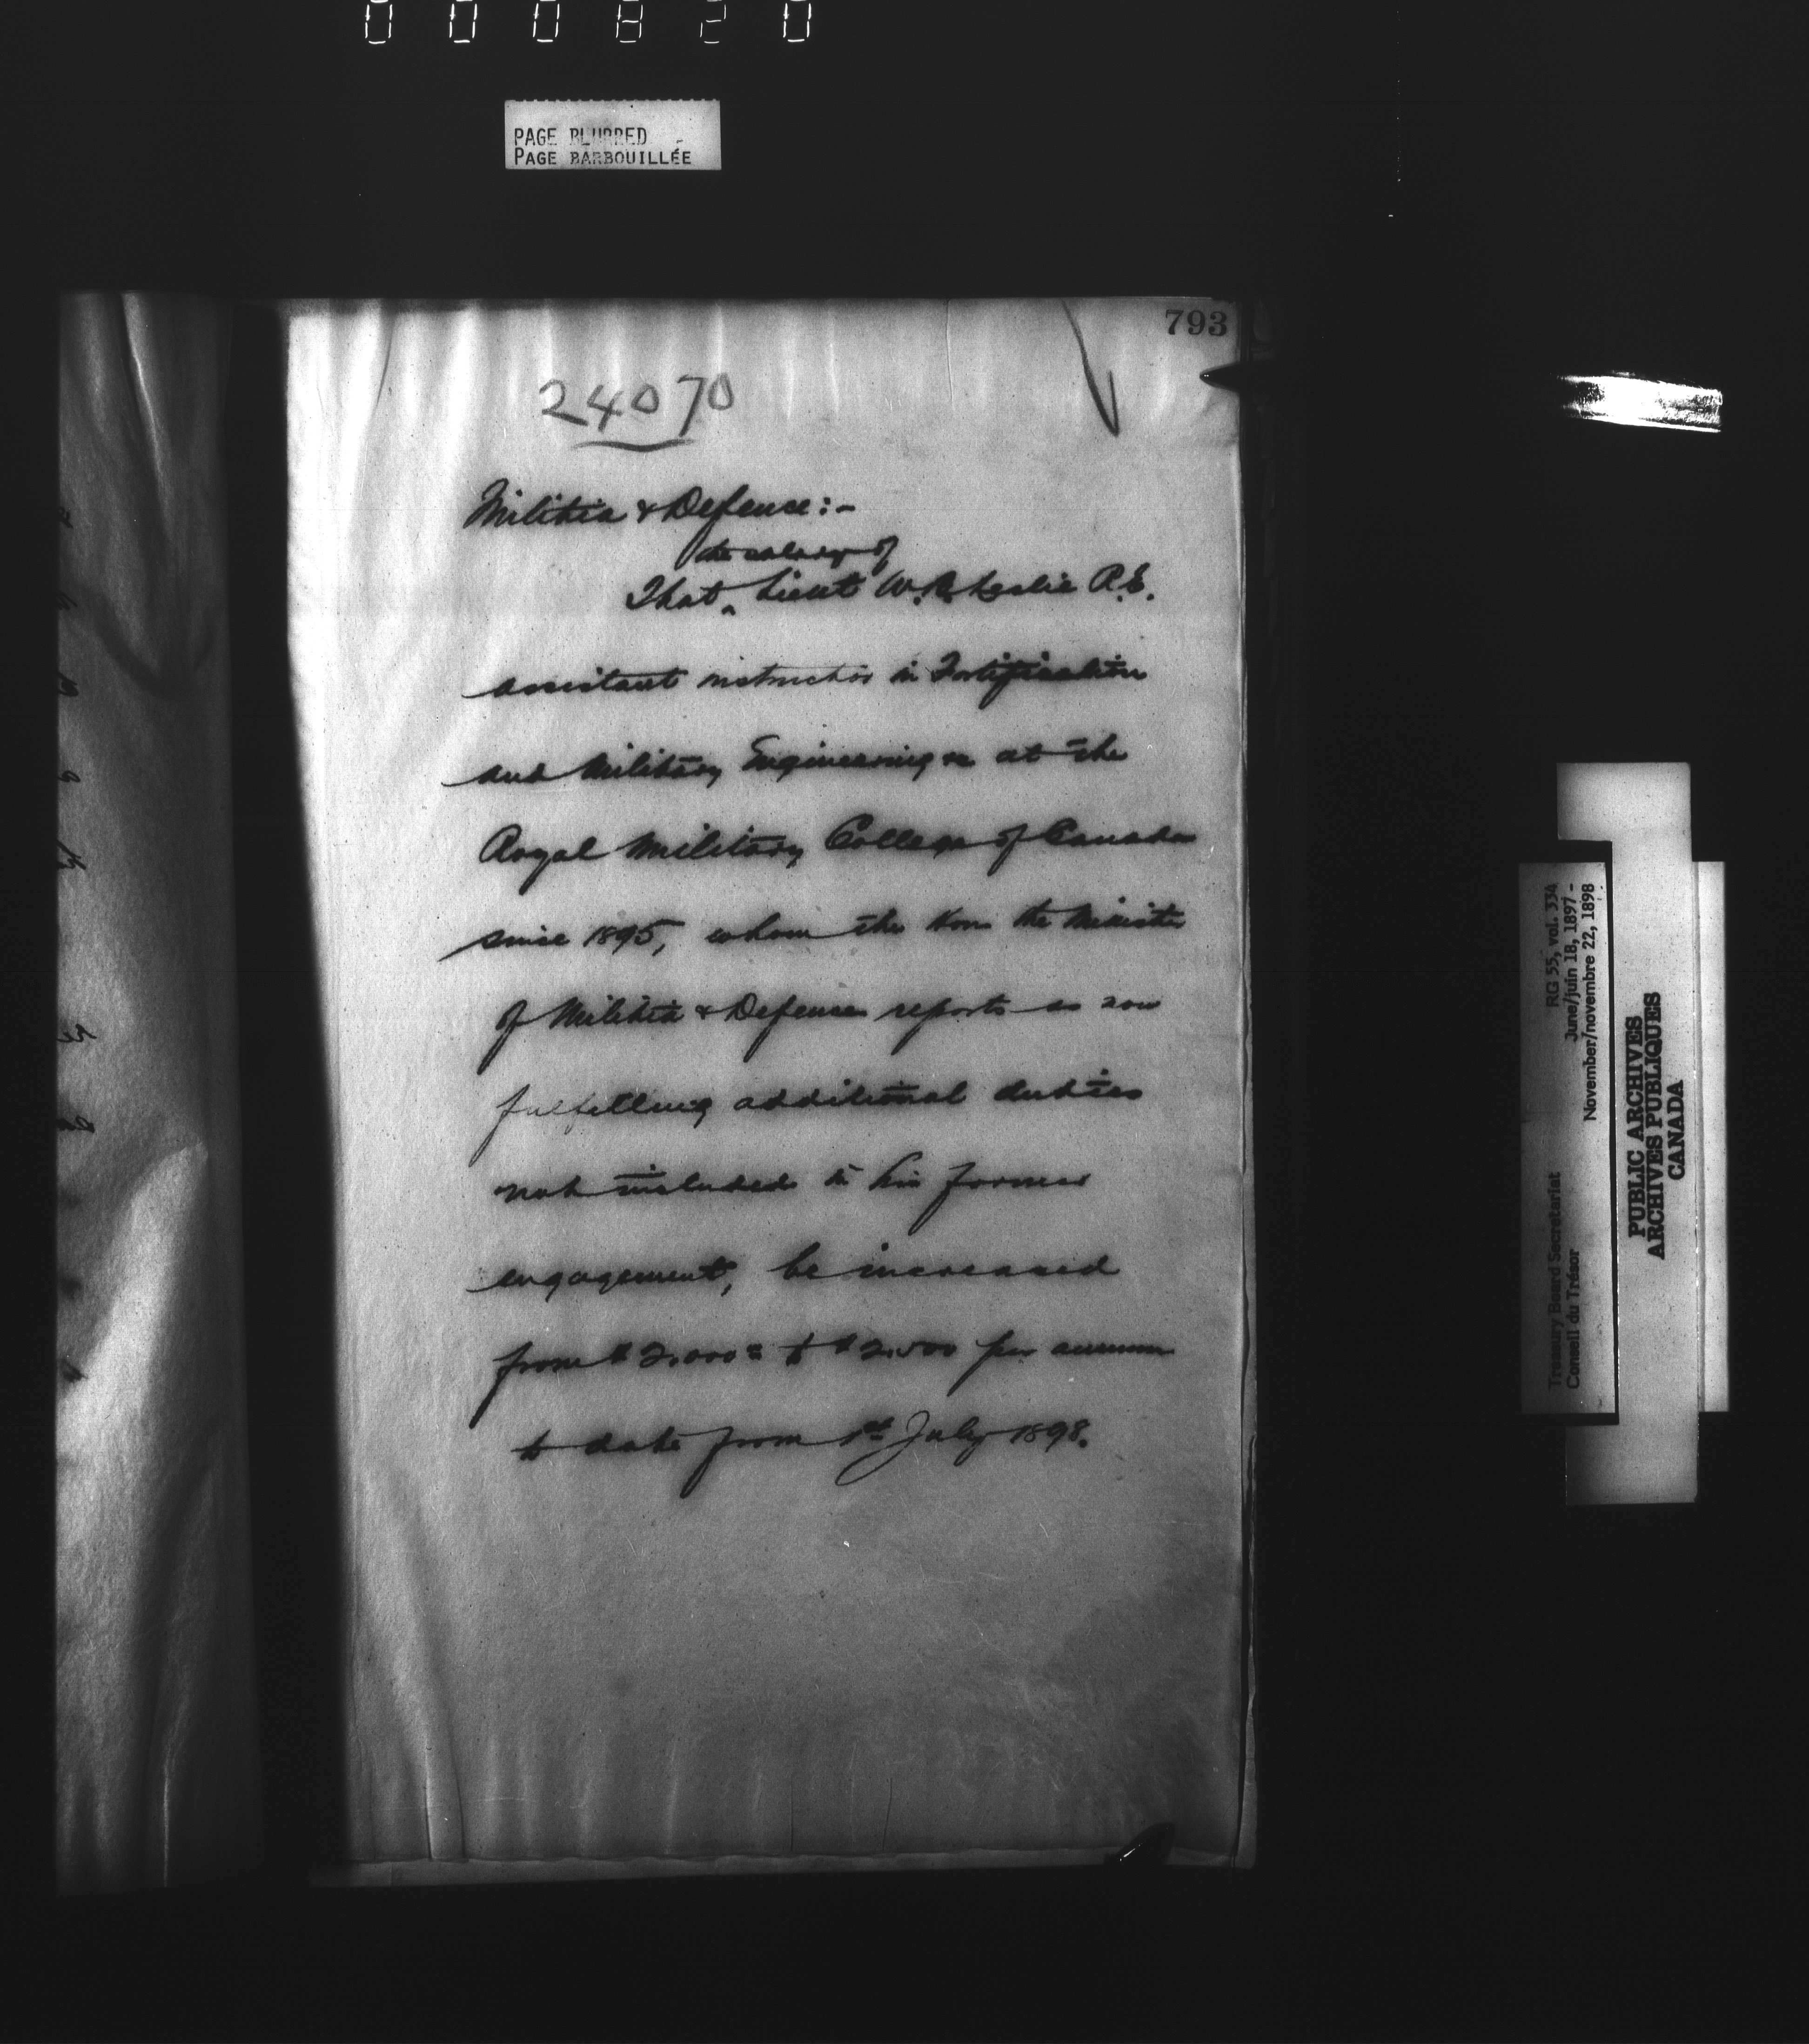 000820
PAGE BLURRED
PAGE BARBOUILLÉE
793
24070
Militia & Defence:-
the salary of
That ^ Lieut W.B. Leslie R.E.
assistant instructor in Fortification
and Military Engineering &c at the
Royal Military College of Canada
since 1895, whom the Hon the Minister
of Militia & Defence reports as now
fulfilling additional duties
not included in his former
engagement, be increased
from $2,000 to $2,500 per annum
to date from 1st July 1898.
Treasury Board Secretariat
Conseil du Trésor
RG 55, vol. 334
June/juin 18, 1897 -
November/novembre 22, 1898
PUBLIC ARCHIVES
ARCHIVES PUBLIQUES
CANADA